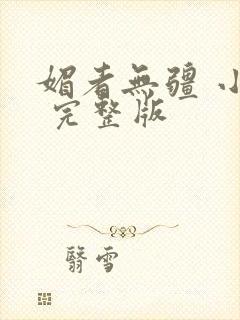 媚者無疆 小
完整版
翳雪